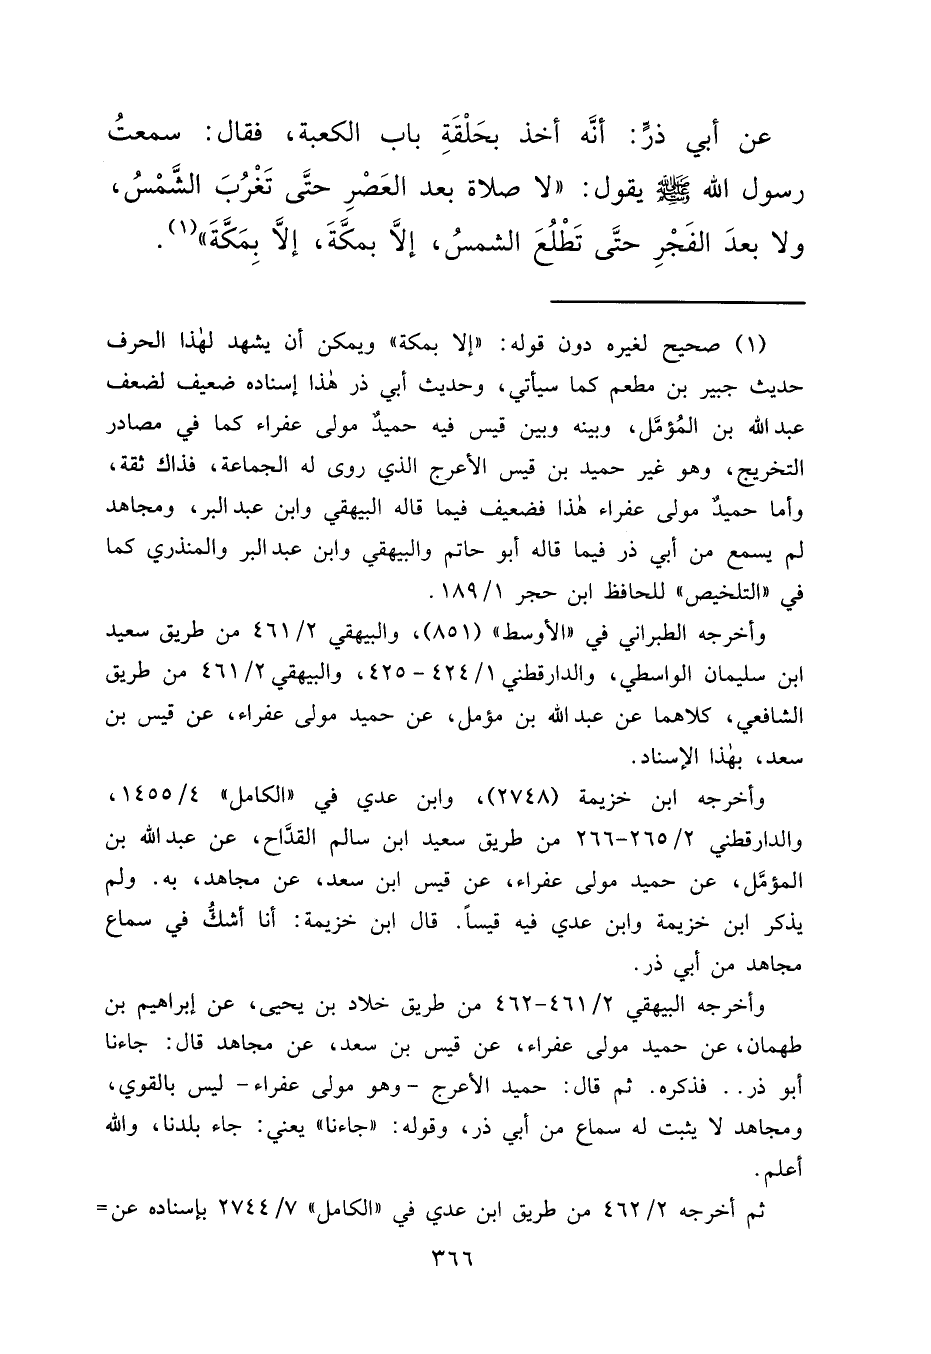 عن أبي ذرٍّ: أنَّه أخذ بحَلْقَةِ باب الكعبة، فقال: سمعتُ
رسول الله ﷺ يقول: «لا صلاة بعد العَصْرِ حتَّى تَغْرُبَ الشَّمْسُ،
ولا بعدَ الفَجْرِ حتَّى تَطْلُعَ الشمسُ، إلاَّ بمكَّةَ، إلاَّ بِمَكَّةَ»(١).
(١) صحيح لغيره دون قوله: «إلا بمكة» ويمكن أن يشهد لهٰذا الحرف
حديث جبير بن مطعم كما سيأتي، وحديث أبي ذر هٰذا إسناده ضعيف لضعف
عبد الله بن المُؤمَّل، وبينه وبين قيس فيه حميدٌ مولى عفراء كما في مصادر
التخريج، وهو غير حميد بن قيس الأعرج الذي روى له الجماعة، فذاك ثقة،
وأما حميدٌ مولى عفراء هٰذا فضعيف فيما قاله البيهقي وابن عبد البر، ومجاهد
لم يسمع من أبي ذر فيما قاله أبو حاتم والبيهقي وابن عبد البر والمنذري كما
في «التلخيص» للحافظ ابن حجر ١/ ١٨٩.
وأخرجه الطبراني في «الأوسط» (٨٥١)، والبيهقي ٢/ ٤٦١ من طريق سعيد
ابن سليمان الواسطي، والدارقطني ١/ ٤٢٤ - ٤٢٥، والبيهقي ٢/ ٤٦١ من طريق
الشافعي، كلاهما عن عبد الله بن مؤمل، عن حميد مولى عفراء، عن قيس بن
سعد، بهٰذا الإسناد.
وأخرجه ابن خزيمة (٢٧٤٨)، وابن عدي في «الكامل» ٤/ ١٤٥٥،
والدارقطني ٢/ ٢٦٥-٢٦٦ من طريق سعيد ابن سالم القدَّاح، عن عبد الله بن
المؤمَّل، عن حميد مولى عفراء، عن قيس ابن سعد، عن مجاهد، به. ولم
يذكر ابن خزيمة وابن عدي فيه قيساً. قال ابن خزيمة: أنا أشكُّ في سماع
مجاهد من أبي ذر.
وأخرجه البيهقي ٢/ ٤٦١-٤٦٢ من طريق خلاد بن يحيى، عن إبراهيم بن
طهمان، عن حميد مولى عفراء، عن قيس بن سعد، عن مجاهد قال: جاءنا
أبو ذر.. فذكره. ثم قال: حميد الأعرج -وهو مولى عفراء- ليس بالقوي،
ومجاهد لا يثبت له سماع من أبي ذر، وقوله: «جاءنا» يعني: جاء بلدنا، والله
أعلم.
ثم أخرجه ٢/ ٤٦٢ من طريق ابن عدي في «الكامل» ٧/ ٢٧٤٤ بإسناده عن=
٣٦٦